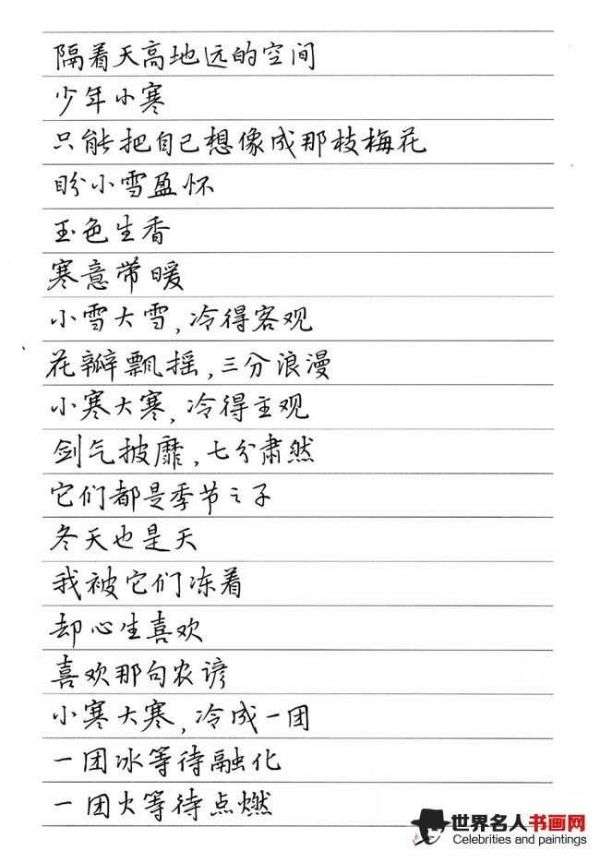 隔着天高地远的空间
少年小寒
只能把自己想像成那枝梅花
盼小雪盈怀
玉色生香
寒意带暖
小雪大雪,冷得客观
花瓣飘摇,三分浪漫
小寒大寒,冷得主观
剑气披靡,七分肃然
它们都是季节之子
冬天也是天
我被它们冻着
却心生喜欢
喜欢那句农谚
小寒大寒,冷成一团
一团冰等待融化
一团火等待点燃
世界名人书画网
Celebrities and paintings